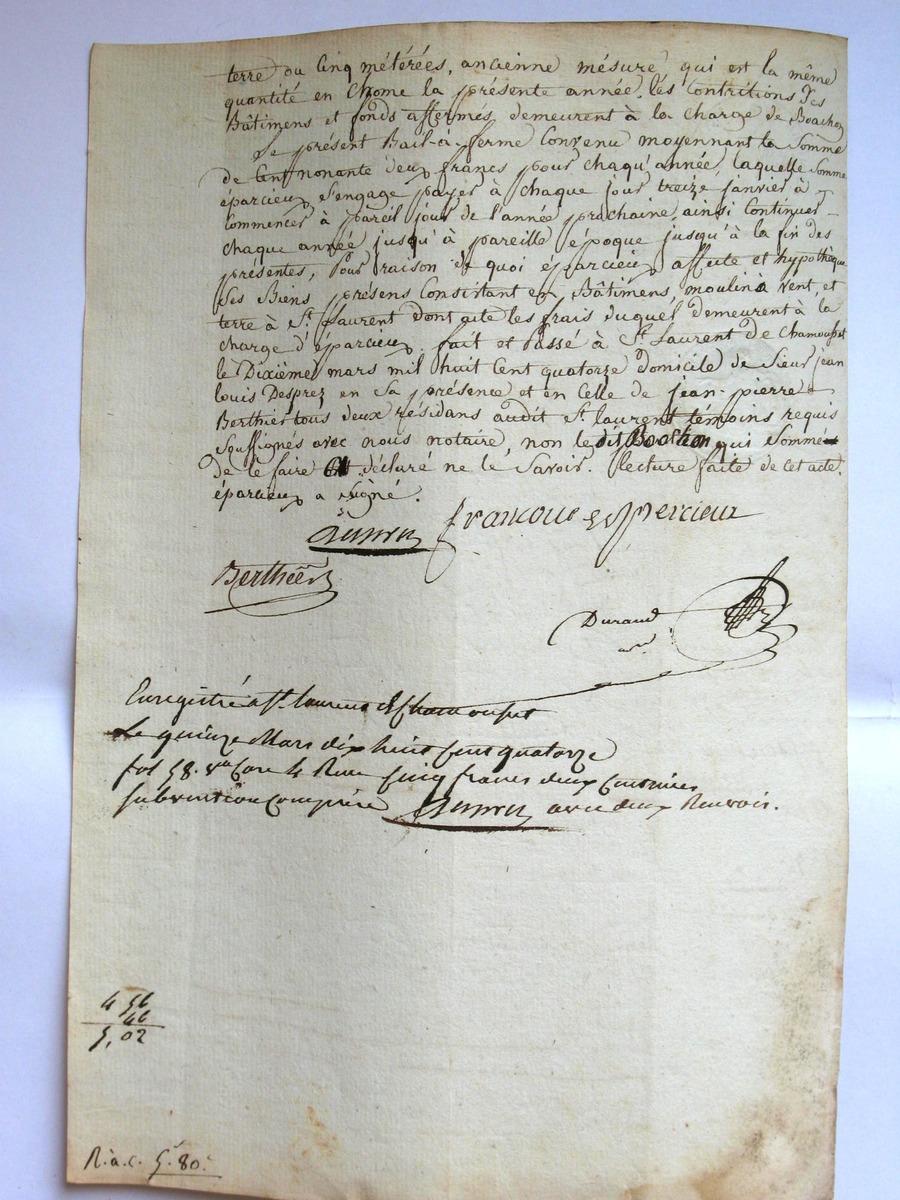 terre ou Cinq métérées, ancienne mésure qui est la même
quantité en Chome la présente année. les Contritions des
Bâtimens et fonds affermés demeurent à la Charge de Boachon
Le présent Bail-à-ferme Convenu moyennant la Somme
de Cent nonante deux francs pour chaqu'année, laquelle Somme
éparcieux S'engage payer à chaque jour treize janvier à
Commencer à pareil jour de l'année prochaine, ainsi Continuer
chaque année jusqu'à pareille époque jusqu'à la fin des
présentes, Pour raison de quoi éparcieux affecte et hypothèque
Ses Biens présens Consistant en Bâtimens, moulin à vent, et
terre à St. Laurent dont acte les frais duquel demeurent à la
charge d'éparcieux. fait et Passé à St. Laurent de Chamousset
le Dixième mars mil huit Cent quatorze domicile de Sieur jean
louis Desprez en Sa présence et en Celle de jean-pierre
Berthier tous deux résidans audit St. laurent témoins requis
Soussignés avec nous notaire, non ledit Boachon qui Sommé
de le faire a déclaré ne le Savoir. Lecture faite de cet acte.
éparcieux a Signé.
francois Esspercieux
Berthier
Durand
Enregistré a St. Laurent de Chamousset
Le quinze Mars dix huit Cent quatorze
fol 58. vo Case 4 Reçu Cinq francs deux Centimes
subvention Comprise avec deux Renvois.
4 56
46
5,02
R. a. c. 5. 80.